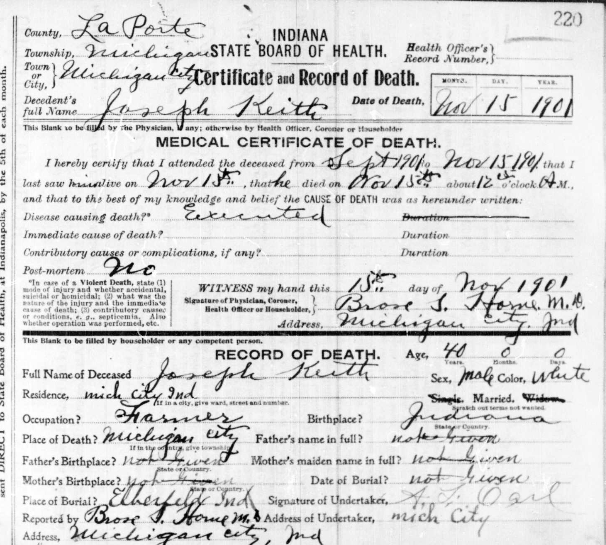 220
County, La Porte
INDIANA
Township, Michigan
STATE BOARD OF HEALTH.
Health Officer's
Record Number,
Town
or
City,
Michigan City
Certificate and Record of Death.
MONTH. DAY. YEAR.
Decedent's
full Name Joseph Keith
Date of Death, Nov 15 1901
This Blank to be filled by the Physician, if any; otherwise by Health Officer, Coroner or Householder
MEDICAL CERTIFICATE OF DEATH.
I hereby certify that I attended the deceased from Sept 1901 to Nov 15 1901 that I
last saw him alive on Nov 15th, that he died on Nov 15th about 12 o'clock A M.,
and that to the best of my knowledge and belief the CAUSE OF DEATH was as hereunder written:
Disease causing death?* Executed Duration
Immediate cause of death? Duration
Contributory causes or complications, if any? Duration
Post-mortem No
"In case of a Violent Death, state (1)
mode of injury and whether accidental,
suicidal or homicidal; (2) what was the
nature of the injury and the immediate
cause of death; (3) contributory causes
or conditions, e. g., septicemia. Also
whether operation was performed, etc.
WITNESS my hand this 15th day of Nov 1901
Signature of Physician, Coroner,
Health Officer or Householder,
Brose S. Horne M.D.
Address, Michigan City, Ind
This blank to be filled by householder or any competent person.
RECORD OF DEATH.
Age, 40 0 0
Years. Months. Days.
Full Name of Deceased Joseph Keith
Sex, Male Color, White
Residence, Mich City Ind
If in city, give ward, street and number.
Single. Married. Widow.
Scratch out terms not wanted.
Occupation? Farmer
Birthplace? Indiana
State or Country.
Place of Death? Michigan City
If in the country, give township
Father's name in full? not Given
Father's Birthplace? not Given
State or Country.
Mother's maiden name in full? not Given
Mother's Birthplace? not Given
State or Country.
Date of Burial? not Given
Place of Burial? Elberfeld Ind
Signature of Undertaker, Carl
Reported by Brose S. Horne M.D.
Address of Undertaker, Mich City
Address, Michigan City, Ind
sent DIRECT to State Board of Health, at Indianapolis, by the 5th of each month.